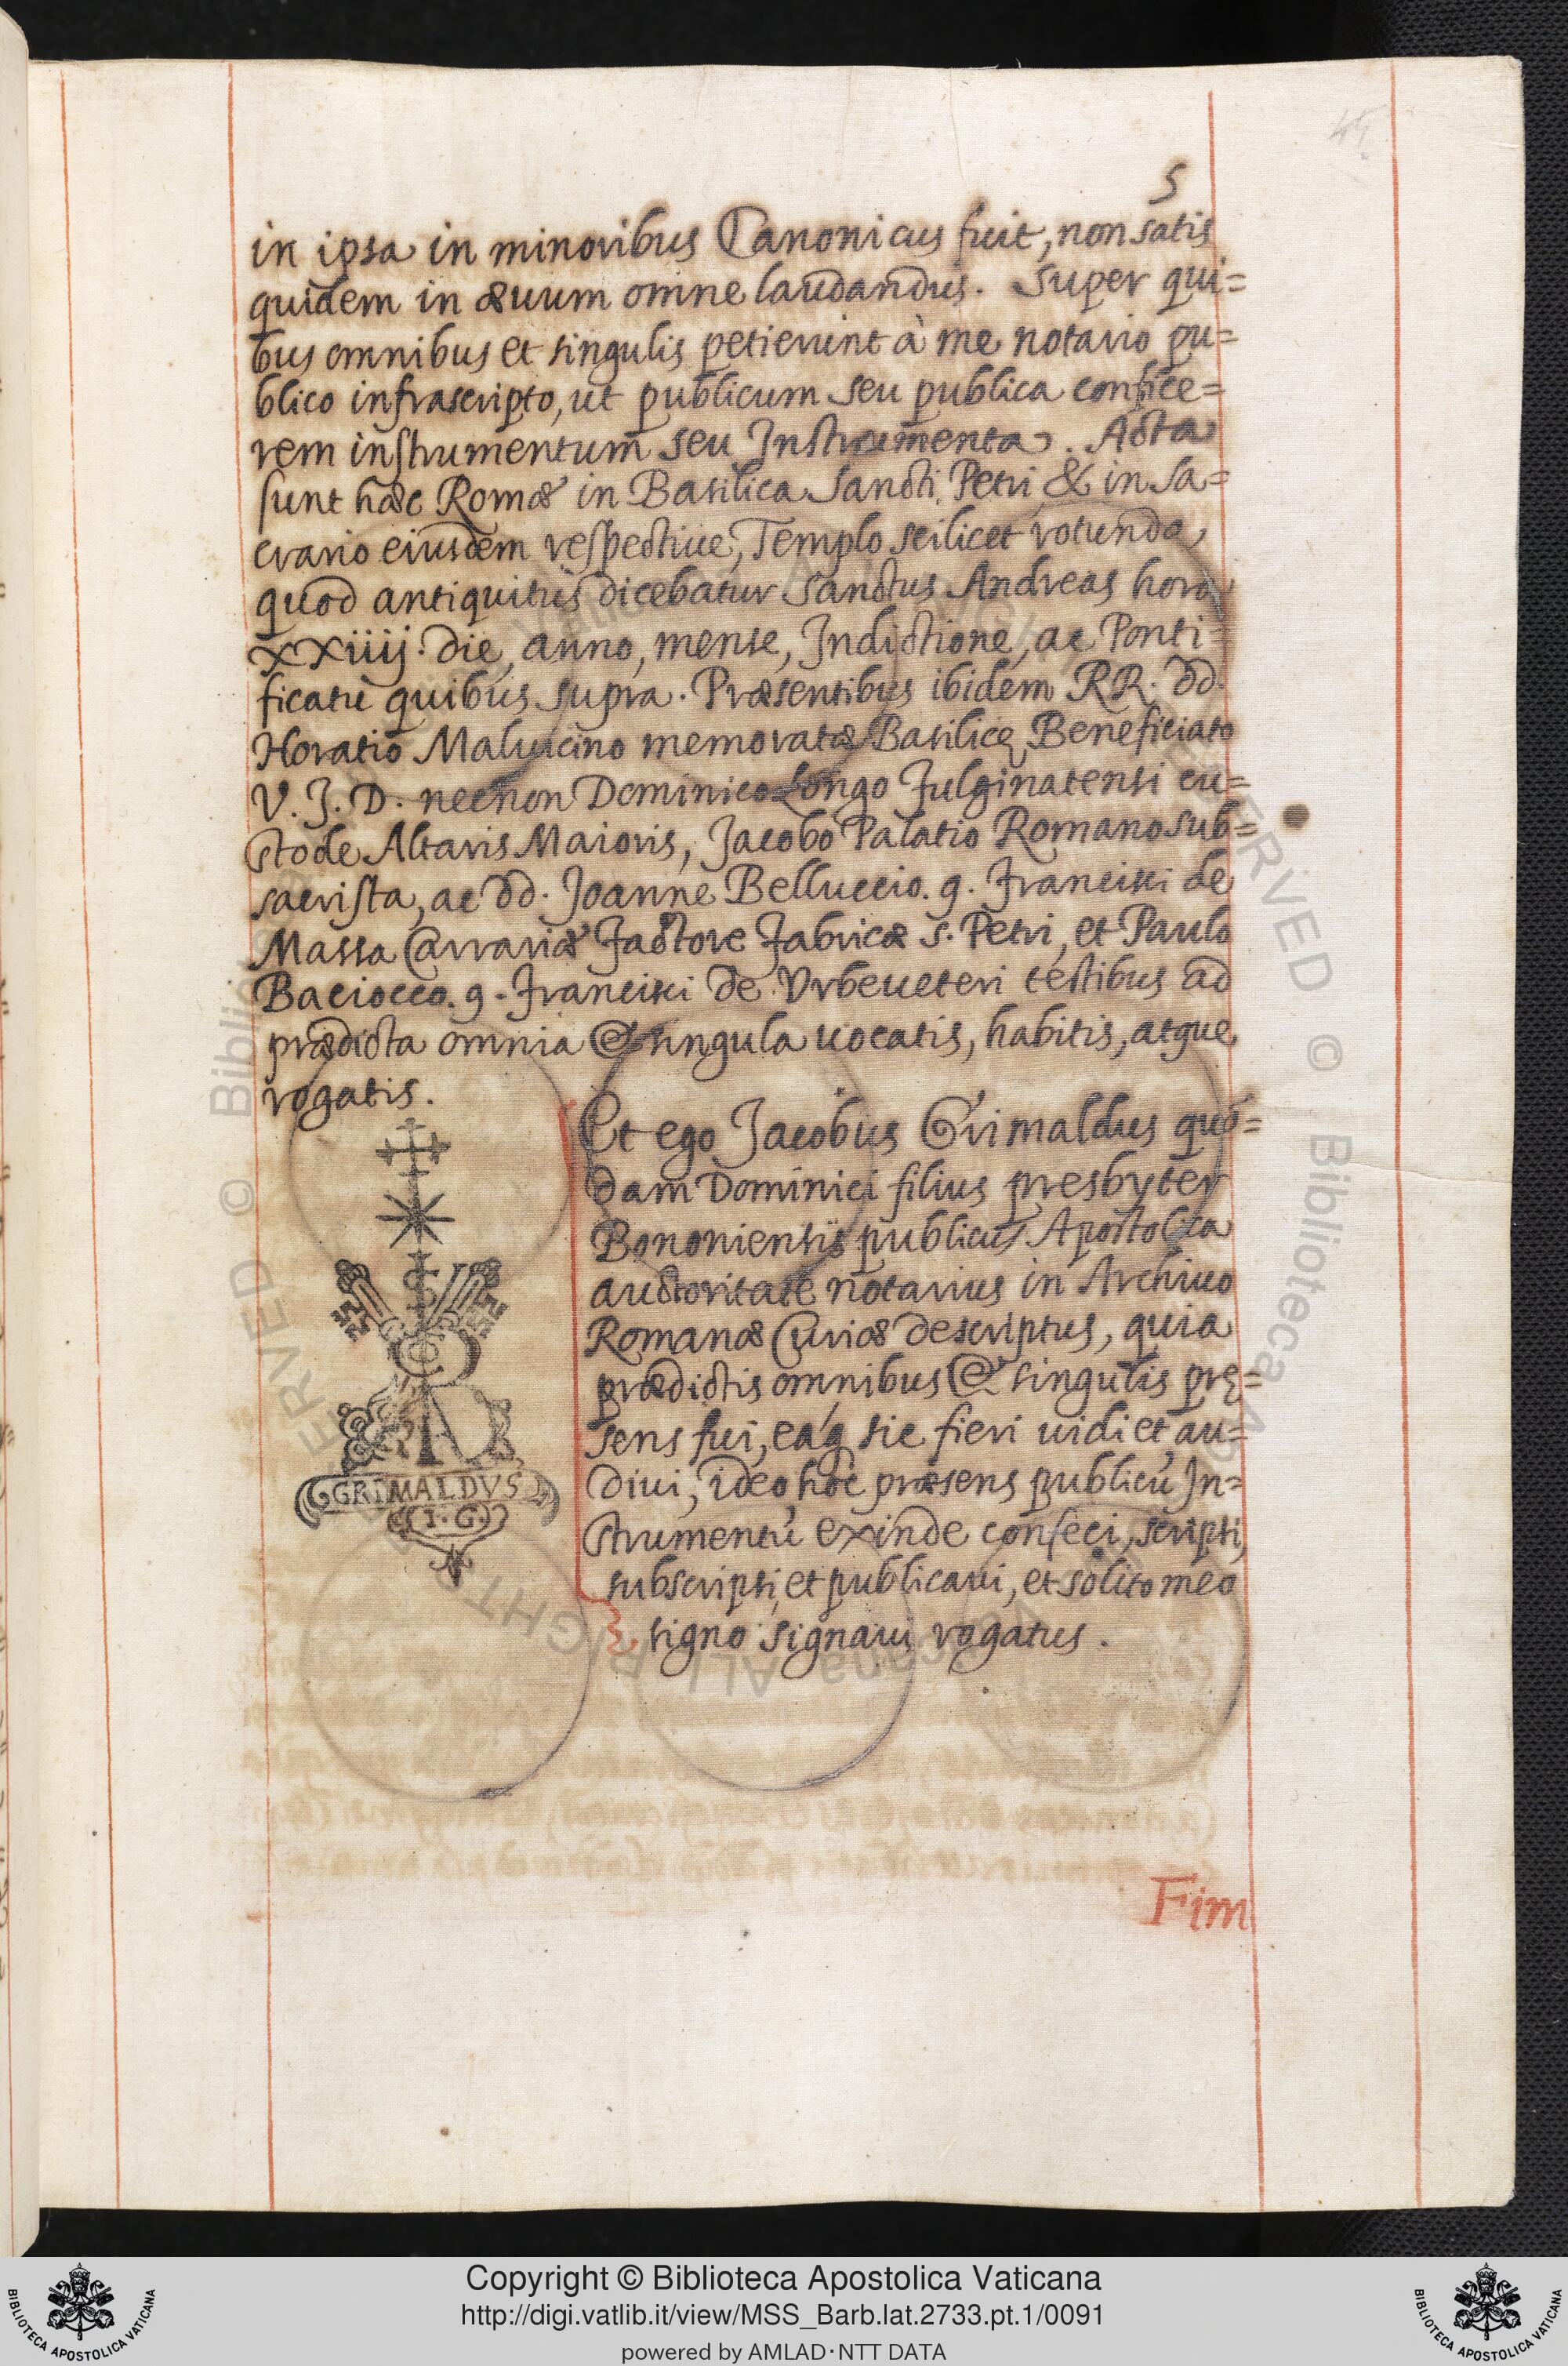 45
5
in ipsa in minoribus Canonicus fuit, non satis
quidem in æuum omne laudandus. Super qui=
bus omnibus et singulis petierunt à me notario pu=
blico infrascripto, ut publicum seu publica confice=
rem instrumentum seu Instrumenta. Acta
sunt hæc Romæ in Basilica Sancti Petri & in Sa=
crario eiusdem respectiue, Templo scilicet rotundo,
quod antiquitus dicebatur Sanctus Andreas hora
xxiiij. die, anno, mense, Indictione, ac Ponti=
ficatu quibus supra. Præsentibus ibidem RR. dd.
Horatio Maluicino memoratæ Basilicę Beneficiato
V. J. D. necnon Dominico Longo Fulginatensi cu=
stode Altaris Maioris, Jacobo Palatio Romano sub=
sacrista, ac dd. Joanne Belluccio. q. Francisci de
Massa Carrariæ Factore Fabricæ S. Petri, et Paulo
Baciocco. q. Francisci de Vrbeueteri testibus ad
prædicta omnia & singula uocatis, habitis, atque
rogatis.
Et ego Jacobus Grimaldus quo=
dam Dominici filius presbyter
Bononiensis publicus Apostolica
auctoritate notarius in Archiuo
Romanæ Curiæ descriptus, quia
prædictis omnibus & singulis prę=
sens fui, eaq́ sic fieri uidi et au=
diui, ideo hoc præsens publicũ In=
strumentũ exinde confeci, scripsi,
subscripsi, et publicaui, et solito meo
signo signaui rogatus.
GRIMALDVS
I. G.
Fim
Copyright © Biblioteca Apostolica Vaticana
http://digi.vatlib.it/view/MSS_Barb.lat.2733.pt.1/0091
powered by AMLAD·NTT DATA
BIBLIOTECA APOSTOLICA VATICANA
BIBLIOTECA APOSTOLICA VATICANA